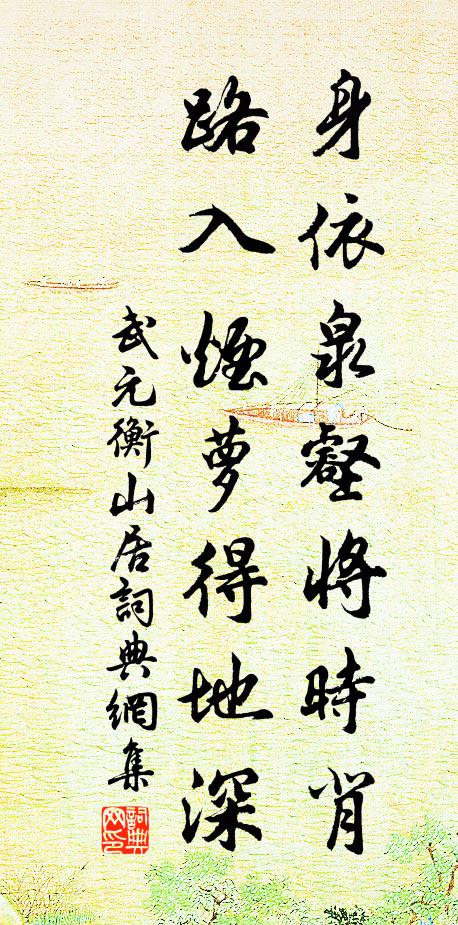 身依泉壑將時背
路入煙萝得地深
武元衡山居詞典網集
詞典网印